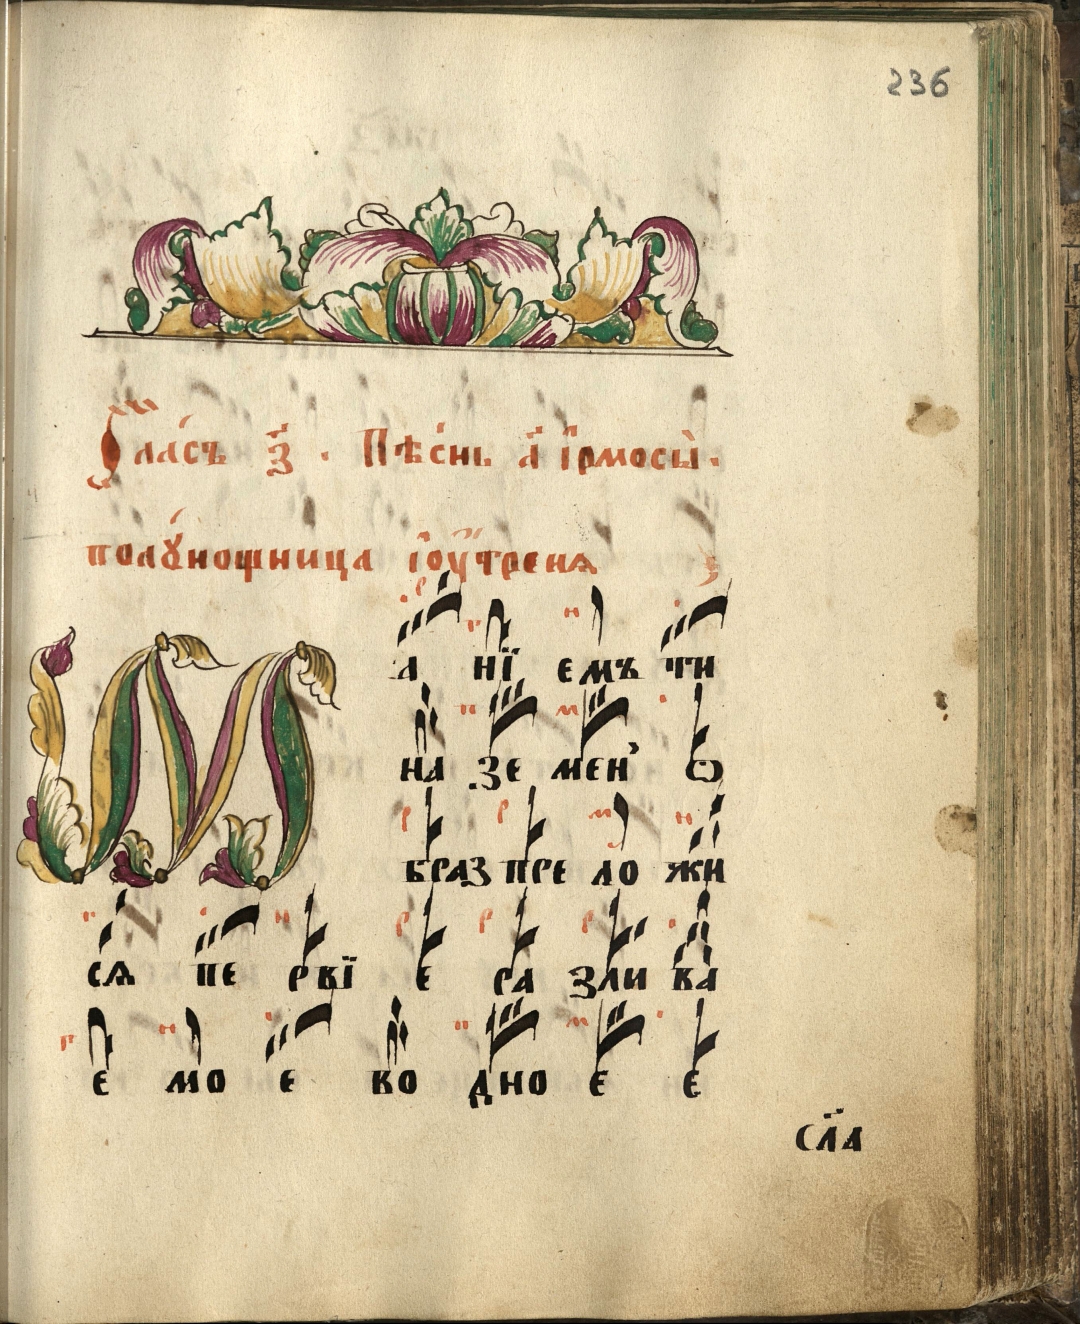 236
Гла́съ з҃ . Пѣ́снь а҃ і҆рмосы̀.
полꙋ́нощница і҆ѹ҆́тренѧ
М а нї емъ ти
на зе мен̾ ѡ
браз пре ло жи
сѧ пе рвї е ра зли ва
е мо е во дно е е
сла